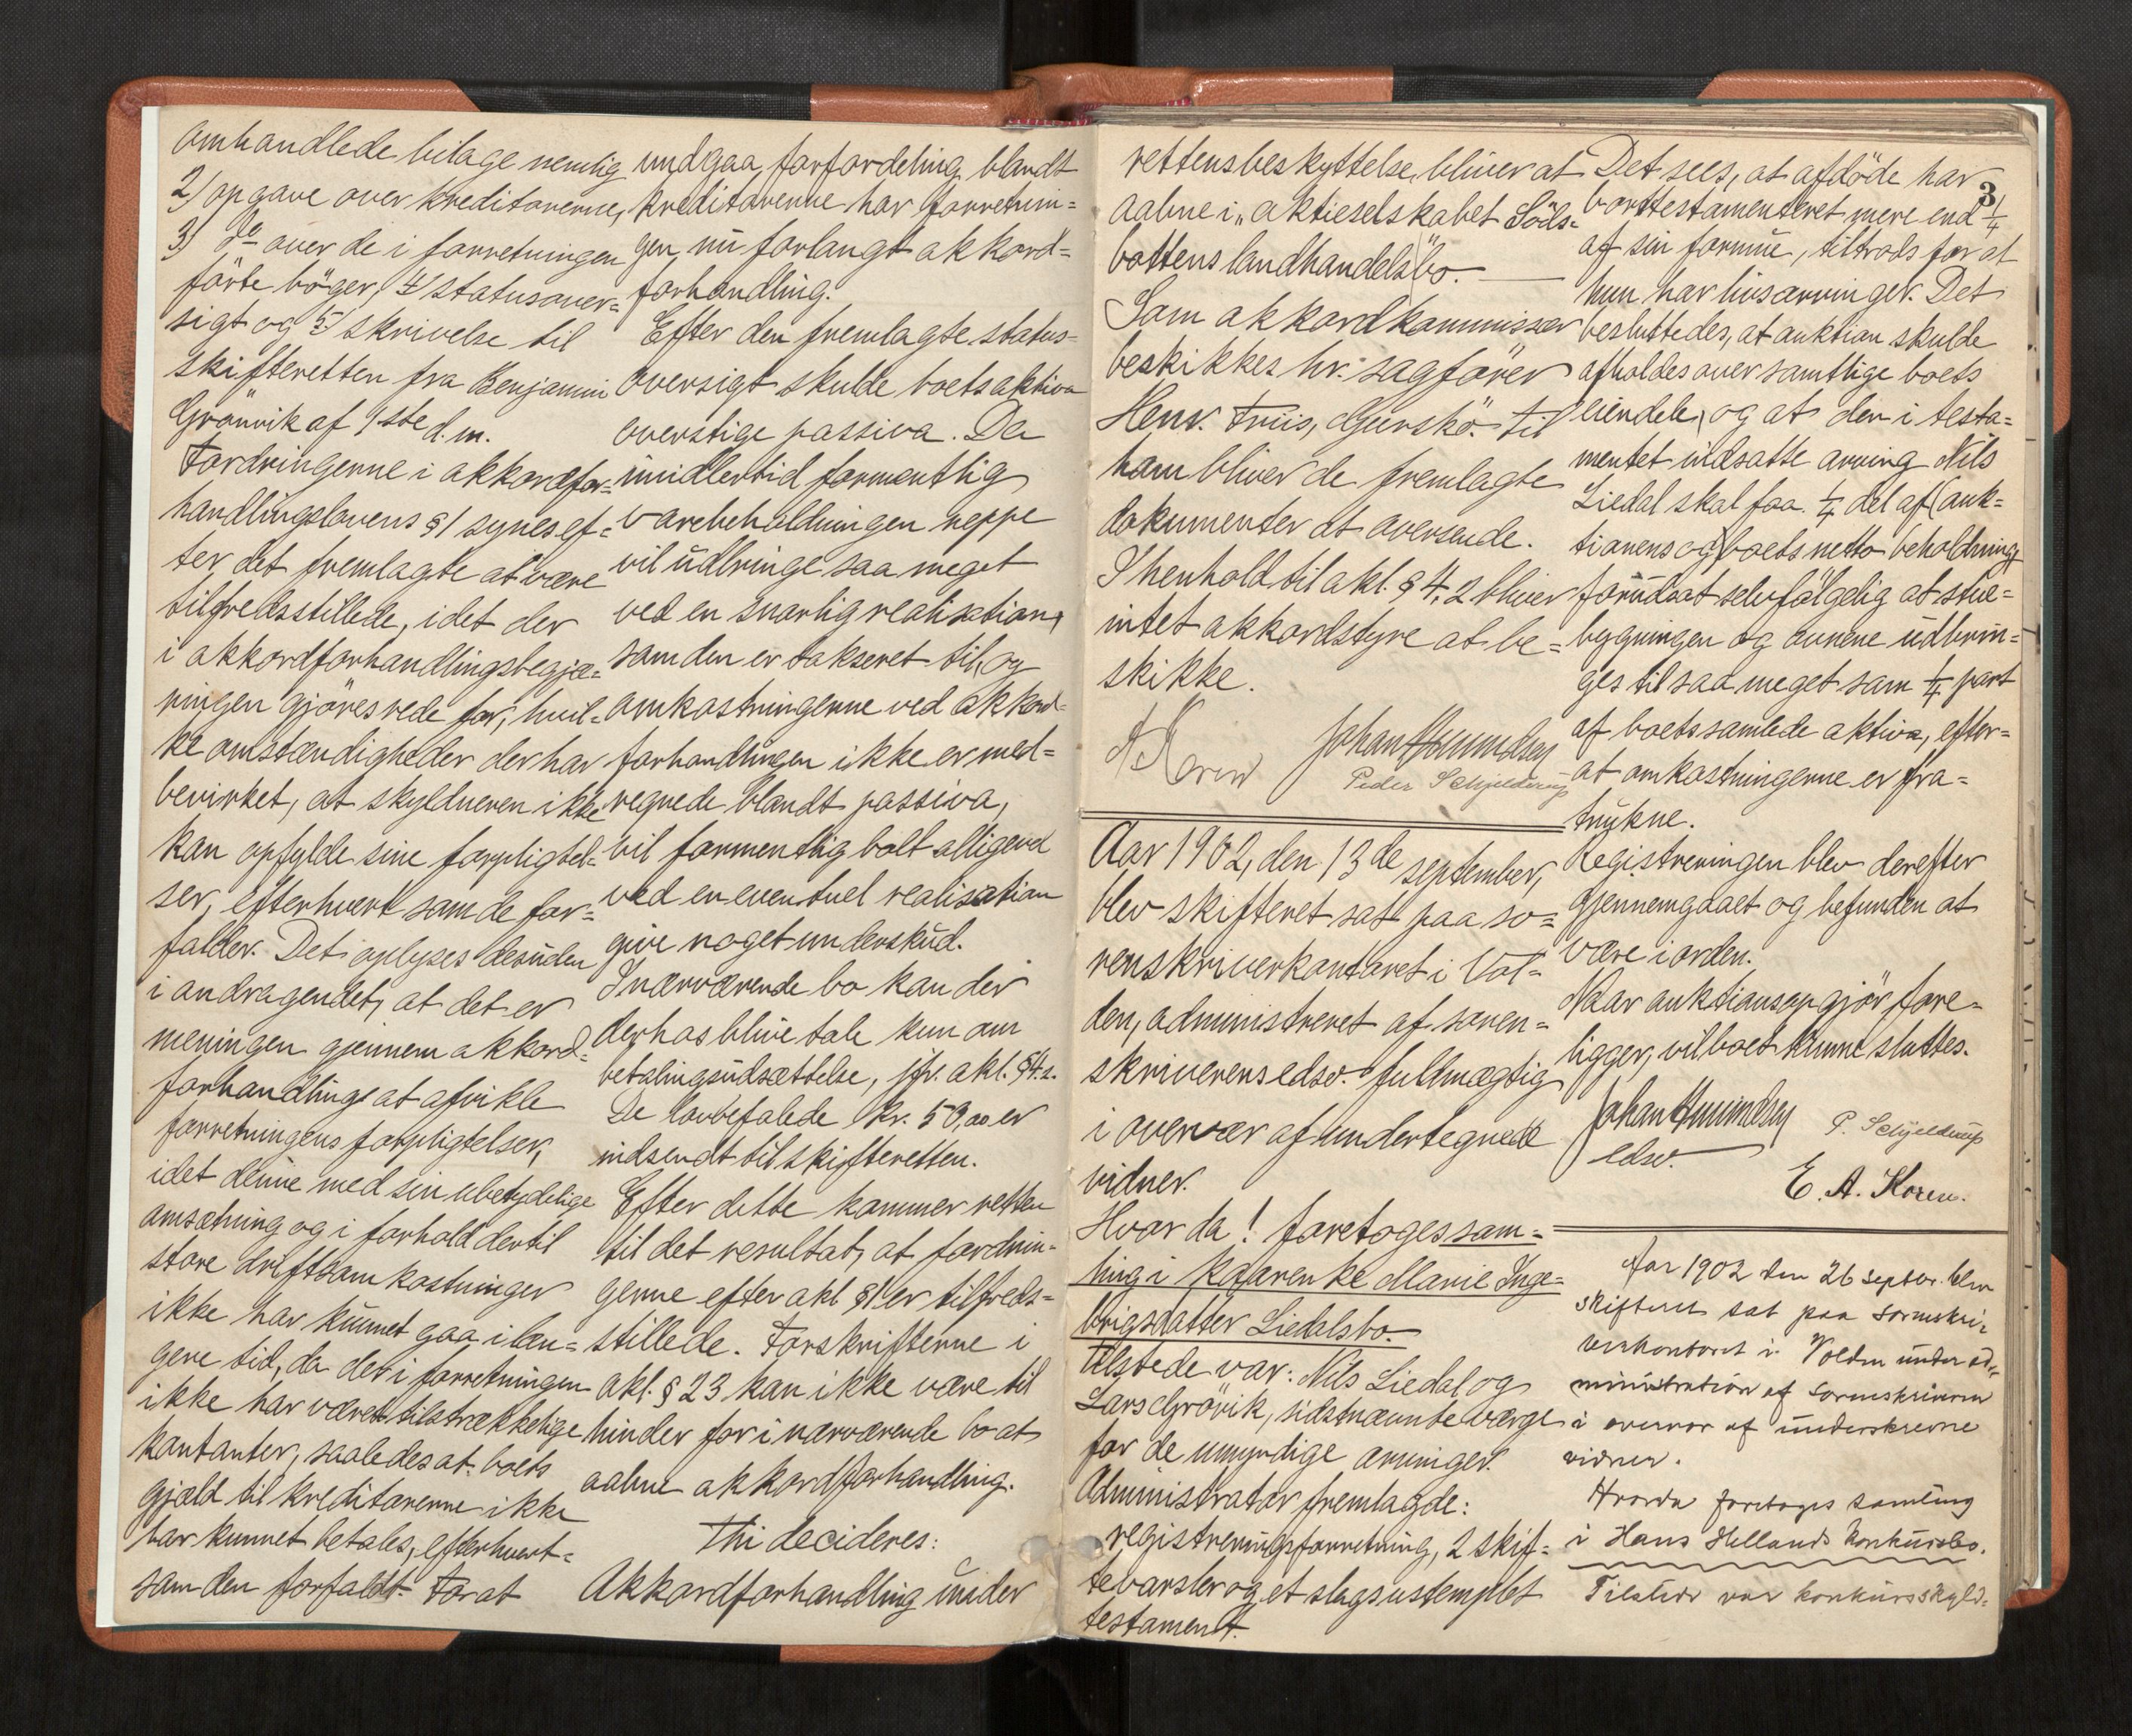 omhandlede bilage nemlig
2) opgave over kreditorerne,
3) do over de i forretningen
förte böger, 4) statusover=
sigt og 5) skrivelse til
skifteretten fra Benjamin
Grönvik af 1ste d.m.
Fordringerne i akkordfor=
handlingslovens § 1 synes ef=
ter det fremlagte at være
tilfredsstillede, idet der
i akkordforhandlingsbegjæ=
ringen gjöres rede for, hvil=
ke omstændigheder der har
bevirket, at skyldneren ikke
kan opfylde sine forpligtel=
ser, efterhvert som de for=
falder. Det oplyses desuden
i andragendet, at det er
meningen gjennem akkord=
forhandling at afvikle
forretningens forpligtelser,
idet denne med sin ubetydelige
omsætning og i forhold dertil
store driftsomkostninger
ikke har kunnet gaa i læn=
gere tid, da der i forretningen
ikke har været tilstrækkelige
kontanter, saaledes at boets
gjæld til kreditorerne ikke
har kunnet betales, efterhvert=
som den forfaldt. For at
undgaa forfordeling blandt
kreditorerne har forretnin=
gen nu forlangt akkord=
forhandling.
Efter den fremlagte status=
oversigt skulde boets aktiva
overstige passiva. Da
imidlertid formentlig
varebeholdningen neppe
vil udbringe saa meget
ved en snarlig realisation,
som den er takseret til, og
omkostningerne ved akkord=
forhandlingen ikke er med=
regnede blandt passiva,
vil formentlig bolt alligevel
ved en eventuel realisation
give noget underskud.
I nærværende bo kan der
derhos blive tale kun om
betalingsudsættelse, jfr. akl. § 4.2.
De lovbefalede kr. 50,00 er
indsendt til skifteretten.
Efter dette kommer retten
til det resultat, at fordrin=
gerne efter akl § 1 er tilfreds=
stillede. Forskrifterne i
akl. § 23 kan ikke være til
hinder for i nærværende bo at
aabne akkordforhandling.
Thi decideres:
Akkordforhandling under
rettens beskyttelse bliver at
aabne i "aktieselskabet Söds=
bottens landhandels" bo.
Som akkordkommissær
beskikkes hr. sagförer
Henr. Friis, Gurskö. Til
ham bliver de fremlagte
dokumenter at oversende.
I henhold til akl. § 4, 2 bliver
intet akkordstyre at be=
skikke.
Koren Johan Amundsen
Peder Schjelderup
Aar 1902, den 13de september,
blev skifteret sat paa so=
renskriverkontoret i Vol=
den, administreret af soren=
skriverens edsv. fuldmægtig
i overvær af undertegnede
vidner.
Hvor da! foretoges sam=
ling i kaarenke Marie Inge=
brigsdatter Liedals bo.
Tilstede var: Nils Liedal og
Lars Grövik, sidstnævnte værge
for de umyndige arvinger.
Administrator fremlagde:
registreringsforretning, 2 skif=
tevarsler og et slags ustemplet
testament.
3
Det sees, at afdöde har
borttestamenteret mere end 1/4
af sin formue, tiltrods for at
hun har livsarvinger. Det
besluttedes, at auktion skulde
afholdes over samtlige boets
eiendele, og at den i testa=
mentet indsatte arving Nils
Liedal skal faa 1/4 del af (auk=
tionens og) boets netto beholdning
forudsat selvfölgelig at stue=
bygningen og ovnene udbrin=
ges til saa meget som 1/4 part
af boets samlede aktiva, efter=
at omkostningerne er fra=
trukne.
Registreringen blev derefter
gjennemgaaet og befunden at
være i orden.
Naar auktionsopgjör fore=
ligger, vil boet kunne sluttes.
Johan Amundsen P. Schjelderup
edsv.
E. A. Koren.
Aar 1902 den 26 septbr. blev
skifteret sat paa sorenskri=
verkontoret i Volden under ad=
ministration af sorenskriveren
i overvær af underskrevne
vidner.
Hvorda foretoges samling
i Hans Hellands konkursbo.
Tilstede var konkursskyld=